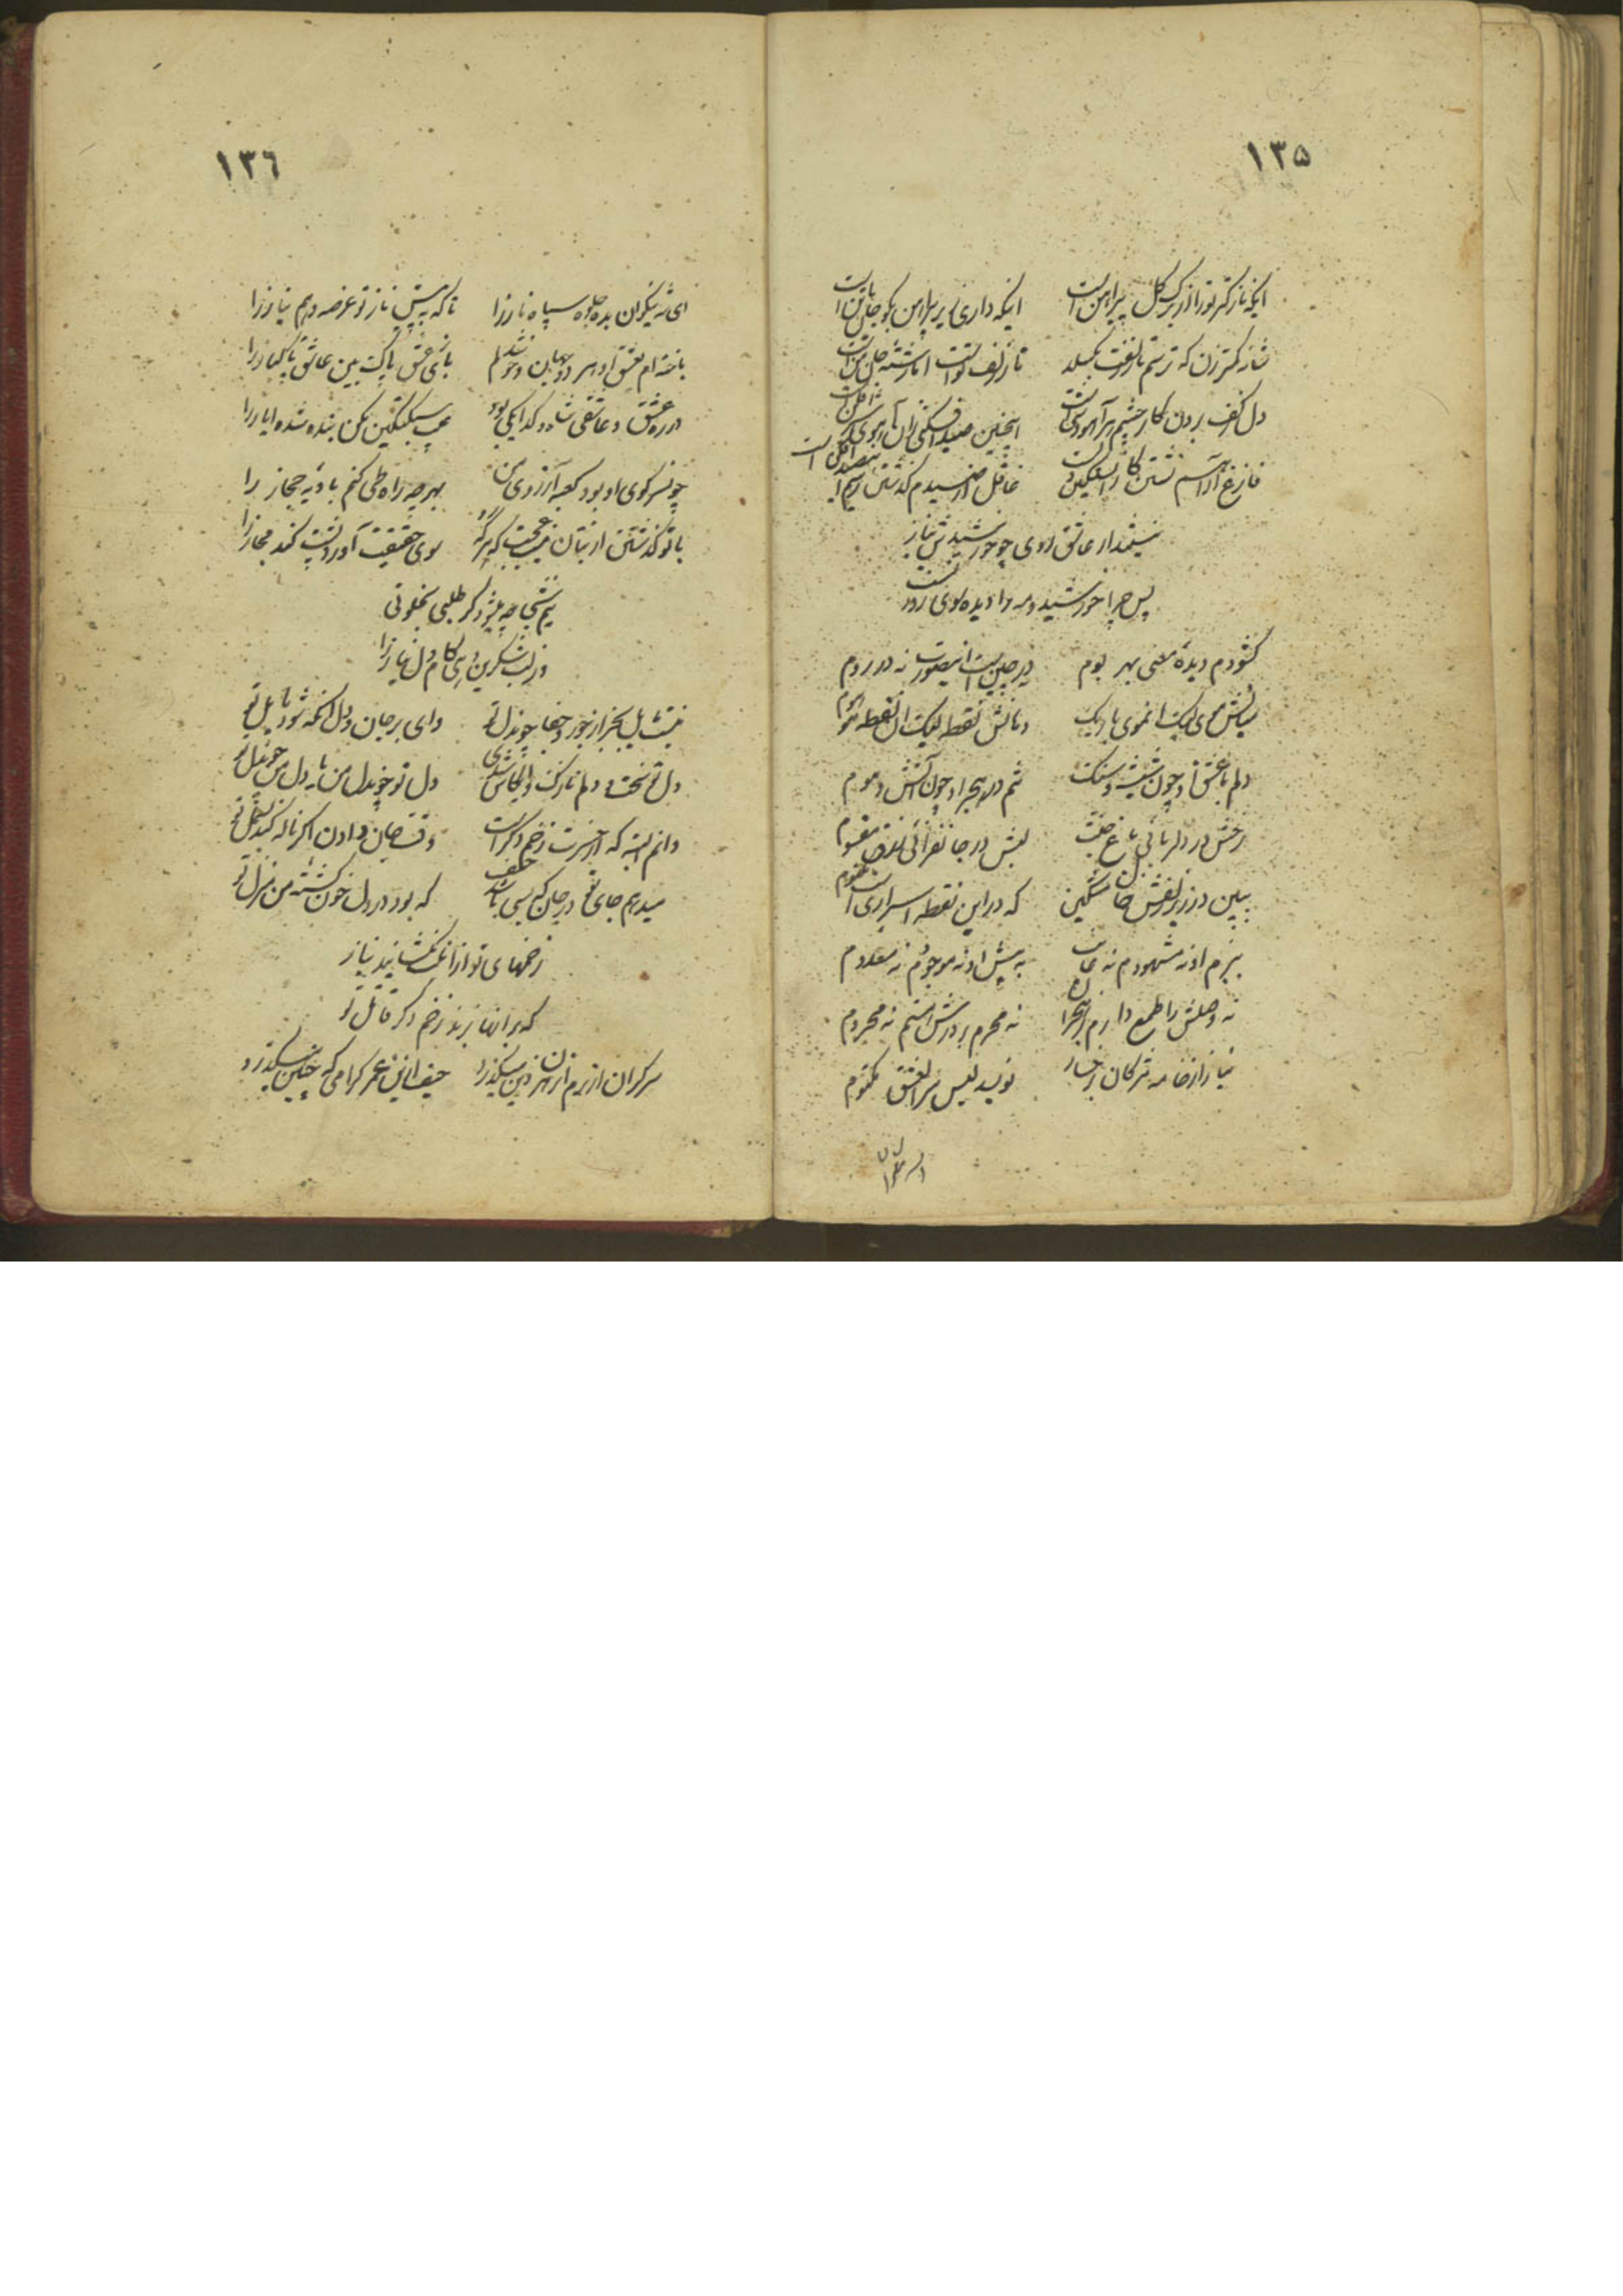 ۱۳۵
ایکه نازکتر تو را از برک کل پیراهن است ایکه داری زیر پیراهن بکو جان یا تن است
شانه کمتر زن که ترسم تار زلفت بکسلد تار زلف تو است اما رشته جان من است
دل ز کف بردن کار چشم هر آهووشی است اینچنین صید افکنی زان آهوی شیر افکن است
فارغ از آن
نیستمدار عاشق روی چو خورشیدش نیاز
پس چرا خورشید و مه را دیده بر وی روزن است
کشودم دیدهٔ معنی بهر بوم نه در چین است اینصورت نه در روم
میانش موی لیکن آنموی باریک دهانش نقطه لیک آن نقطه موهوم
دلم با عشق او چون شیشه و سنک تنم در هجر او چون آتش و موم
رخش در دلربائی باغ جنت لبش در جانفزائی رزق مقسوم
ببین در زیر زلفش خال مشکین که در این نقطه اسراری است مکتوم
ببزم او نه مشهودم نه غایب به پیش او نه موجودم نه معدوم
نه وصلش را طمع دارم نه هجران نه محرم بر درش هستم نه محروم
نیاز از خامه مژکان برخسار نویسد لیس سر العشق مکتوم
۱۳٦
ای شه نیکوان بده جلوه سپاه ناز را تا که به پیش ناز تو عرضه دهم نیاز را
باخته ام بعشق او هر دو جهان و خوشدلم بازی عشق پاک بین عاشق پاکباز را
در ره عشق و عاشقی شاه و کدا یکی بود سبکتکین بنده شده ایاز را
چون سر کوی او بود کعبه آرزوی من بهر چه راه طی کنم بادیه حجاز را
با تو کذشتن از بتان نیست عجب که هر که سوی حقیقت آورد پشت کند مجاز را
نیم شبی چه میشود کر طلبی بخلوتی
وز لب شکرین دهی کام دل نیاز را
نیست مایل بجز از جور و جفا چون دل تو وای بر جان و دل آنکه شود مایل تو
دل تو سخت و دلم نازک و ایکاش بدی دل تو چون دل من یا دل من چون دل تو
دانم البته که از حسرت زخم دکر است وقت جان دادن اکر ناله کند بسمل تو
میدهم جای تو در جان که بسی باشد حیف که بود در دل خون کشته من منزل تو
زخمهای تو از آن نمکشانید نیاز
که بر آنها بزند زخم دکر قاتل تو
سرکران از برم آن رهزن دین میکذرد حیف از این عمر کرامی که چنین میکذرد